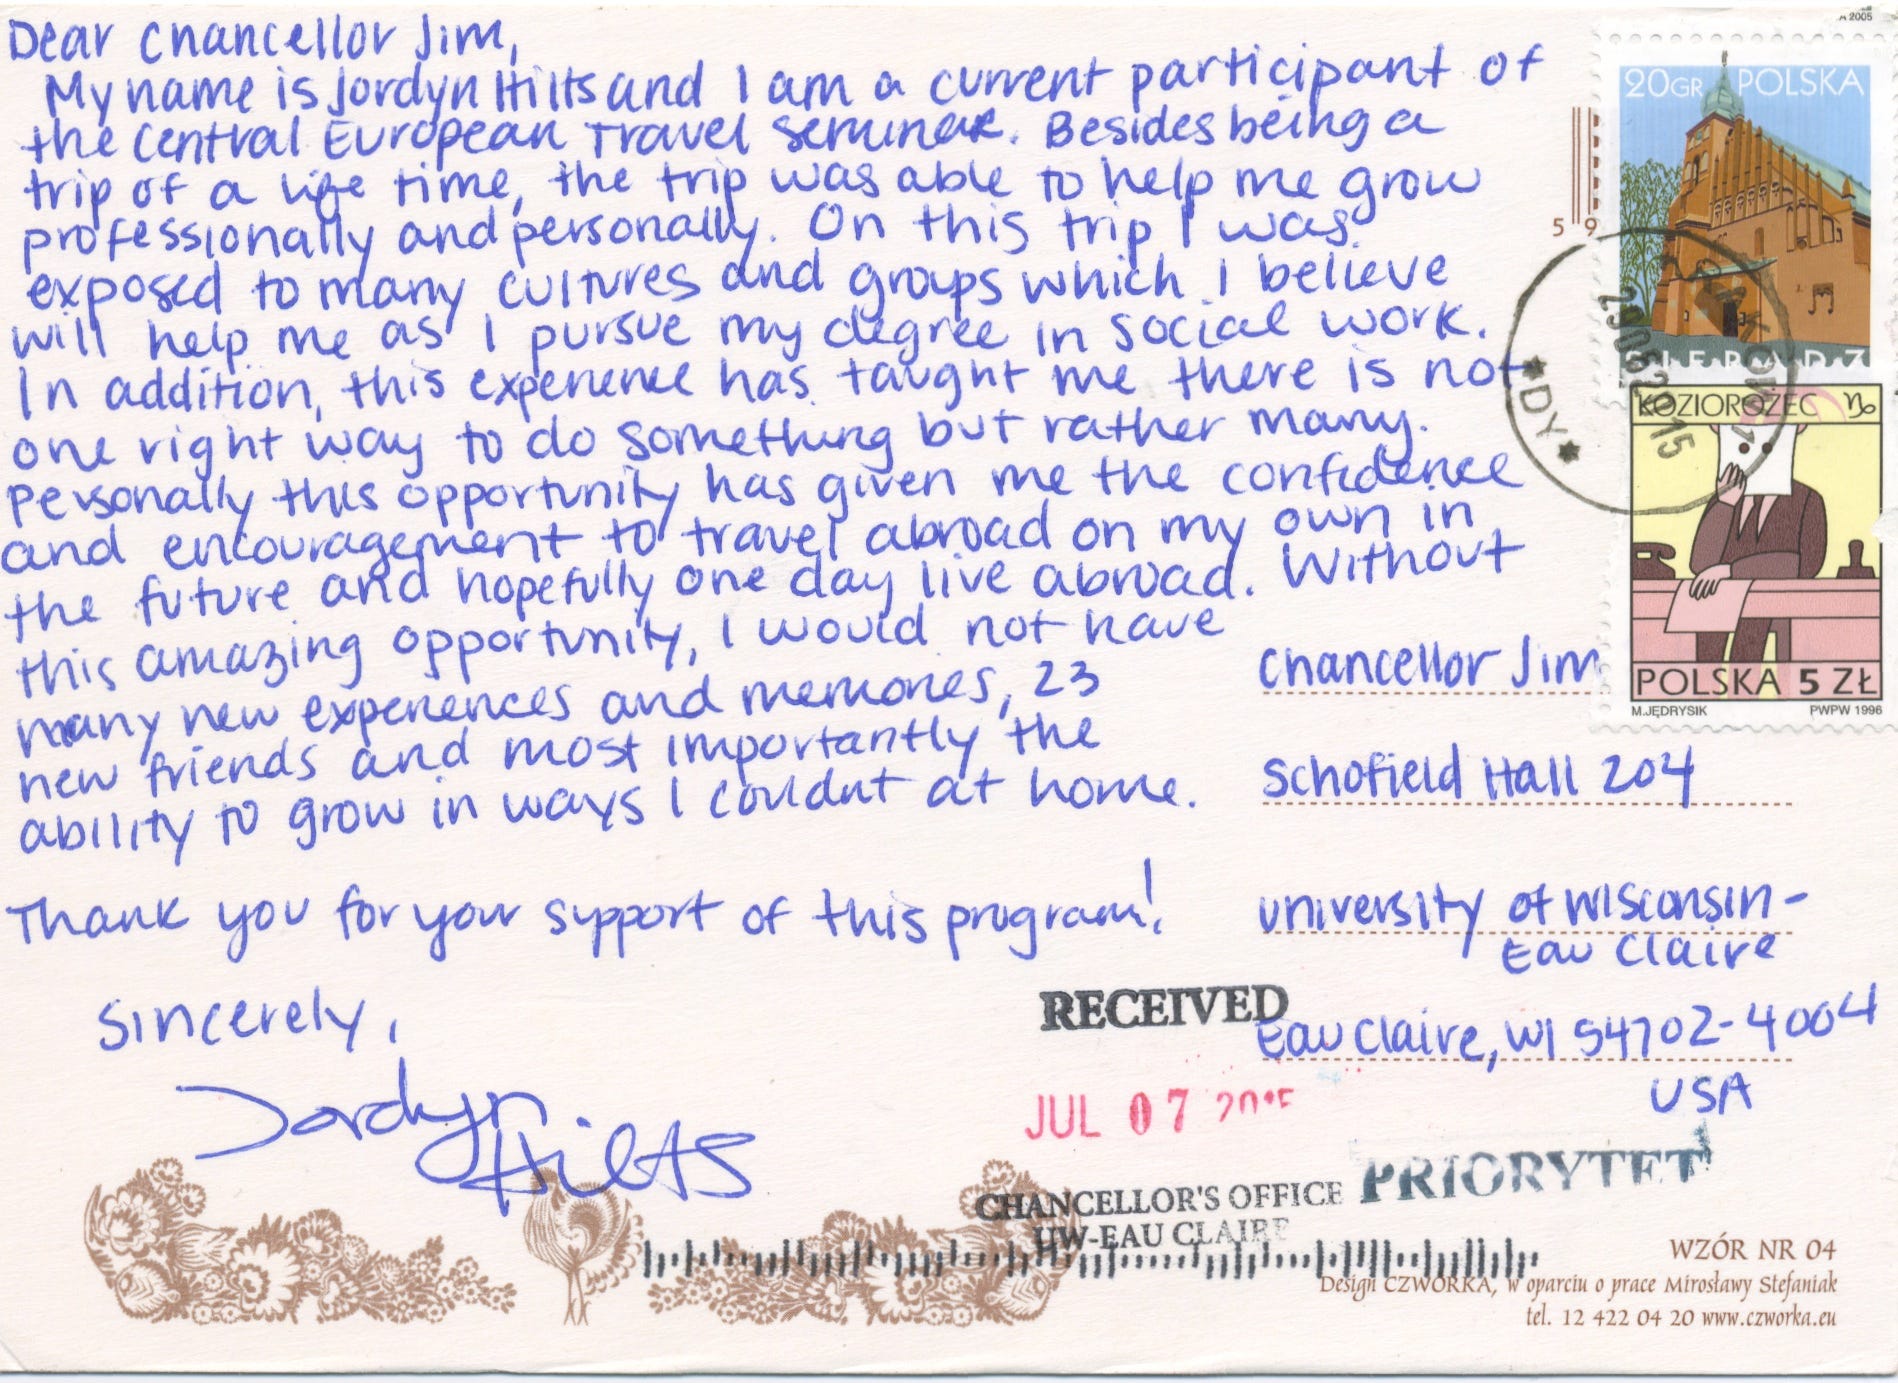 Dear Chancellor Jim,
My name is Jordyn Hilts and I am a current participant of
the Central European Travel Seminar. Besides being a
trip of a life time, the trip was able to help me grow
professionally and personally. On this trip I was
exposed to many cultures and groups which I believe
will help me as I pursue my degree in social work.
In addition, this experience has taught me there is not
one right way to do something but rather many.
Personally this opportunity has given me the confidence
and encouragement to travel abroad on my own in
the future and hopefully one day live abroad. Without
this amazing opportunity, I would not have
many new experiences and memories, 23
new friends and most importantly the
ability to grow in ways I couldnt at home.
Thank you for your support of this program!
Sincerely,
Jordyn
Hilts
2005
20GR POLSKA
5 9
29 06 2015
DY
KOZIOROŻEC
POLSKA 5 ZŁ
M.JĘDRYSIK PWPW 1996
Chancellor Jim
Schofield Hall 204
University of Wisconsin-
Eau Claire
Eau Claire, WI 54702-4004
USA
RECEIVED
JUL 07 2015
CHANCELLOR'S OFFICE
UW-EAU CLAIRE
PRIORYTET
WZÓR NR 04
Design CZWORKA, w oparciu o prace Mirosławy Stefaniak
tel. 12 422 04 20 www.czworka.eu